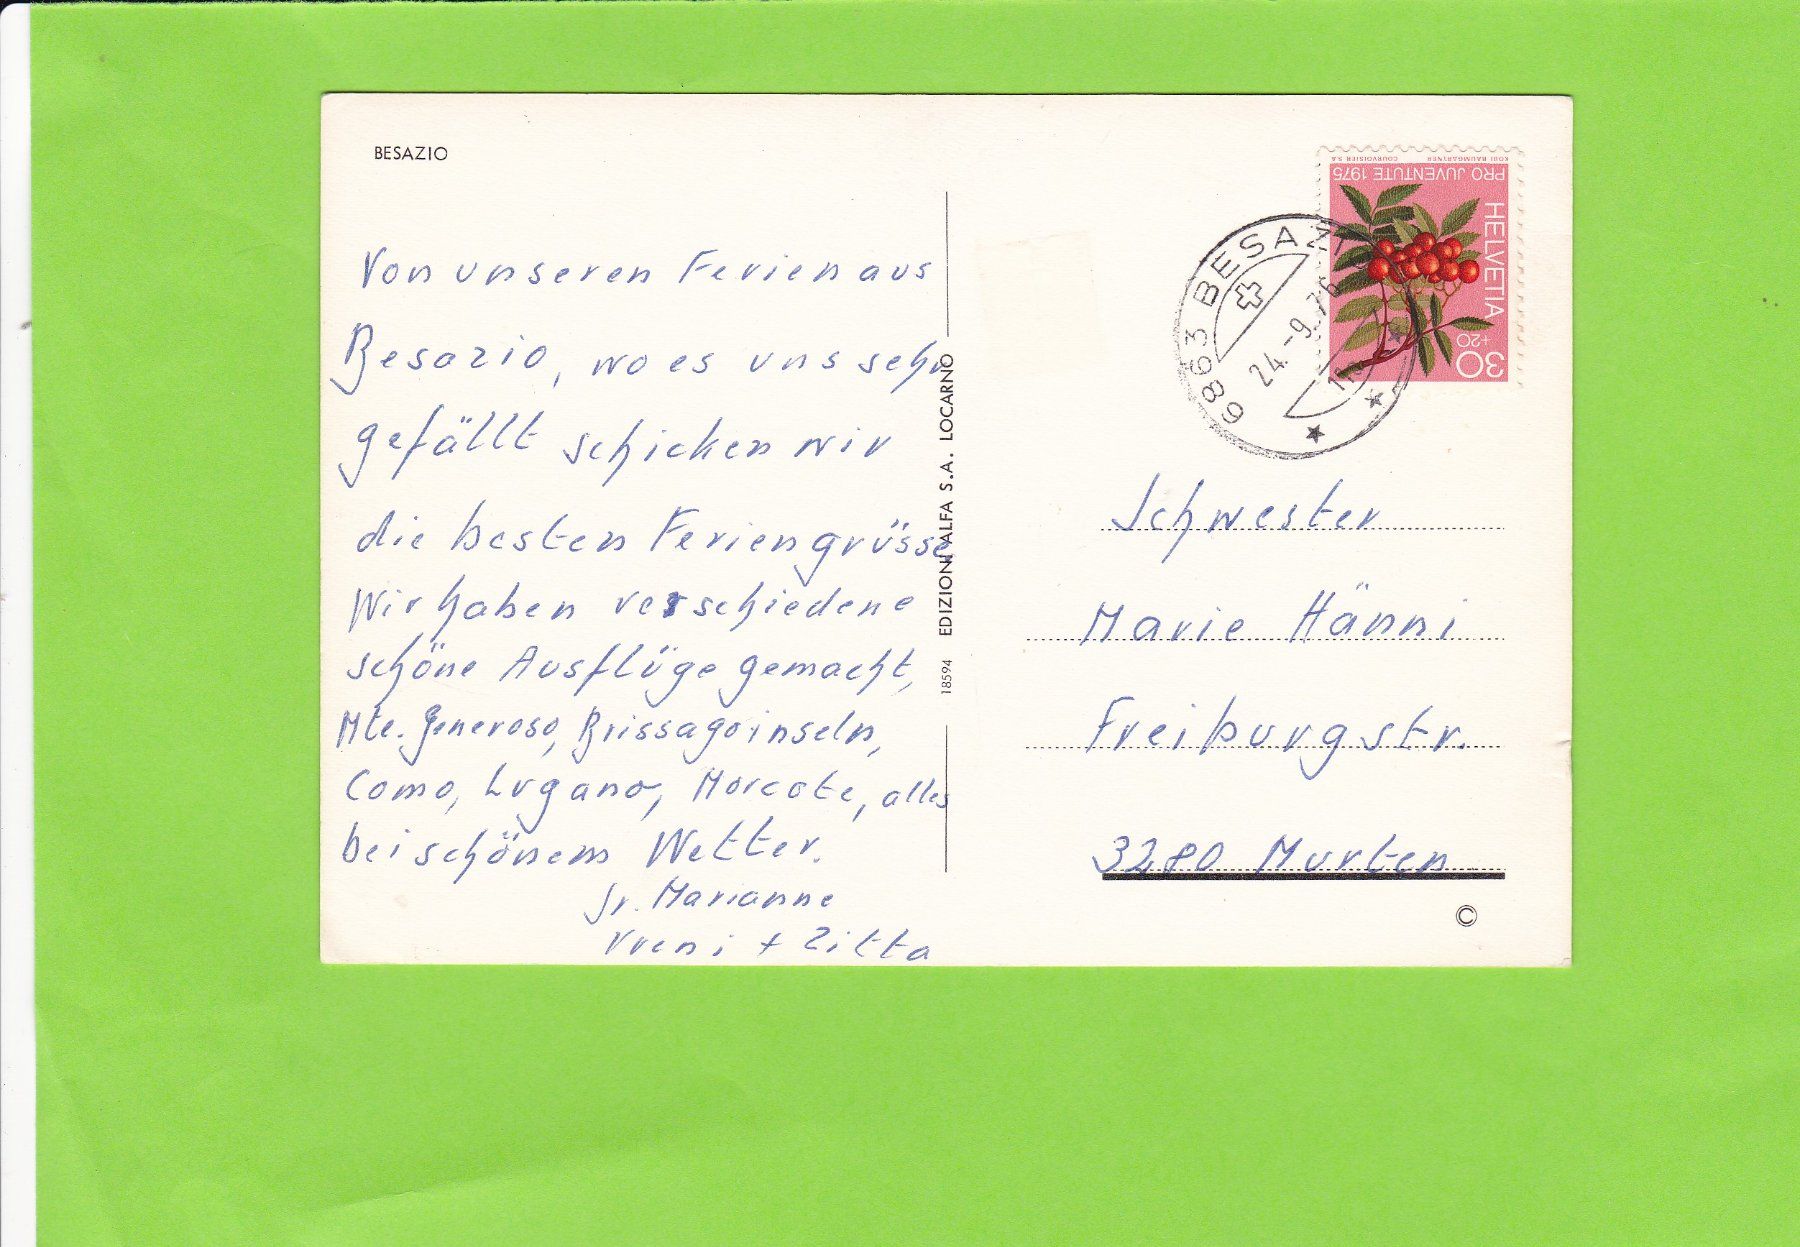 BESAZIO
Von unseren Ferien aus
Besazio, wo es uns sehr
gefällt schicken wir
die besten Feriengrüsse
Wir haben verschiedene
schöne Ausflüge gemacht,
Mte. Generoso, Brissagoinseln,
Como, Lugano, Morcote, alles
bei schönem Wetter.
Sr. Marianne
Vreni + Zitta
18594 EDIZIONI ALFA S.A. LOCARNO
KOBI BAUMGARTNER COURVOISIER S.A.
PRO JUVENTUTE 1975
HELVETIA
30
+20
6863 BESAZ
24.-9.76
Schwester
Marie Hänni
Freiburgstr.
3280 Murten
©